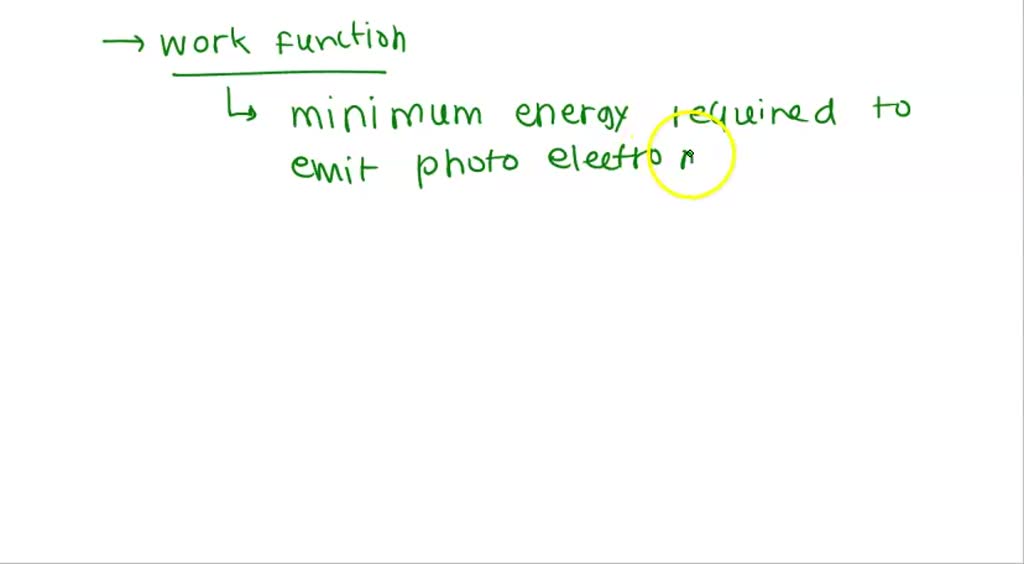 → work function
↳ minimum energy required to
emit photo electron